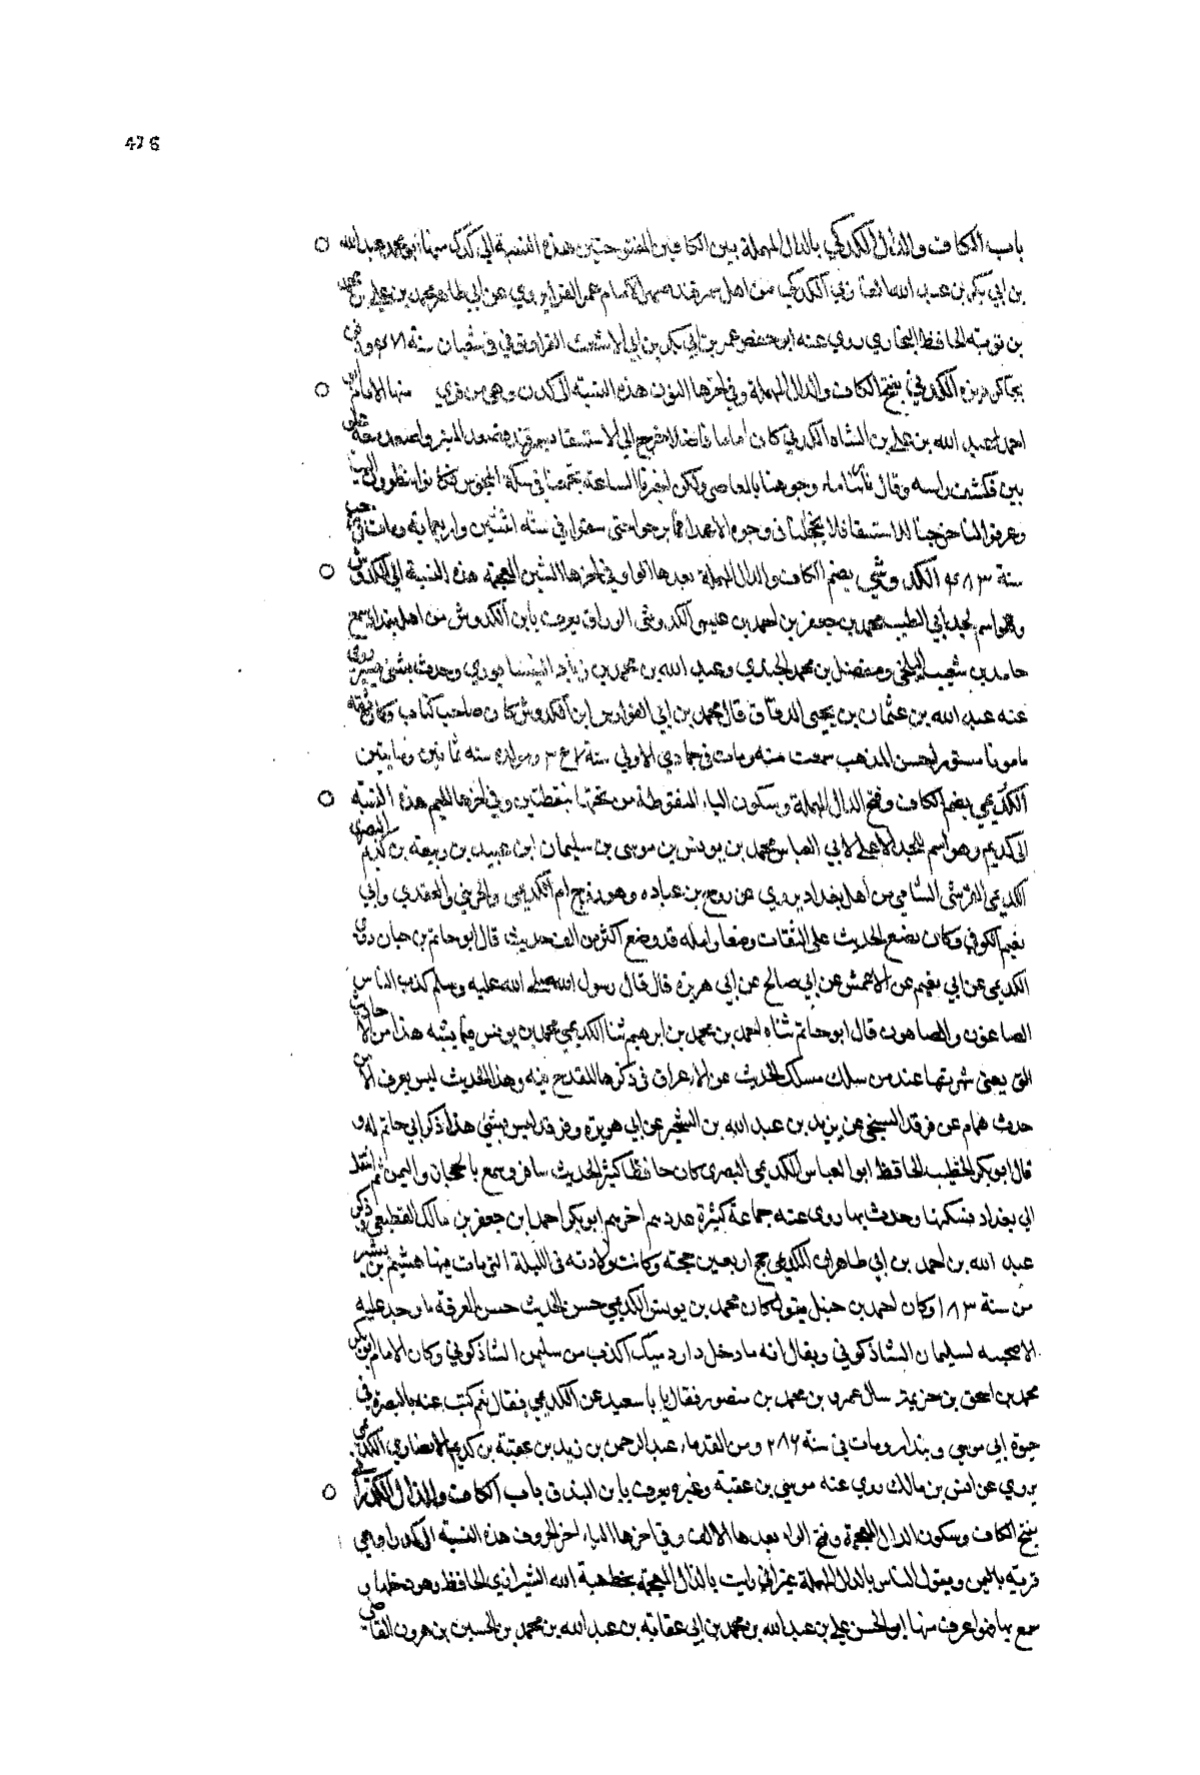 476
باب الكاف والدال الكدكي بالدال المهملة بين الكافين المفتوحتين هذه النسبة الى كدك منها ابو محمد عبد الله
بن ابي بكر بن عبد الله الكدكي من اهل سمرقند الامام عمر يروي عن ابي طاهر محمد بن علي بن محمد
بن نوية الحافظ البخاري روي عنه ابو حفص عمر بن ابي بكر بن ابي الاشعث في شعبان سنة
الكدني بفتح الكاف والدال المهملة وفي اخرها النون هذه النسبة الى كدن وهي من قري منها الامام
احمد عبد الله بن علي بن الشاه الكدني كان اماما فاضلا خرج الى الاستسقا بسمرقند وصعد المنبر
بين فكشف راسه وقال وجوهنا بالمعاصي ولكن الساعة في سكة المجوس كانوا
وعرفوا انا خرجنا للاستسقا فلا تخجلنا في وجوه الاعدا حتى سقوا في سنة اثنتين واربعماية ومات في رجب
سنة الكدوشي بضم الكاف والدال المهملة بعدها الواو وفي اخرها الشين المعجمة هذه النسبة الى الكدوش
وهو اسم لجد ابي الطيب محمد بن جعفر بن احمد بن عيسى الكدوشي الوراق يعرف بابن الكدوش من اهل بغداد سمع
حامد بن شعيب البلخي ومفضل بن محمد الجندي وعبد الله بن محمد بن زياد النيسابوري وحدث بشيء يسير روي
عنه عبد الله بن عثمان بن يحيى الدقاق قال محمد بن ابي الفوارس ابن الكدوش كان صاحب كتاب وكان ثقه
مامونا مستورا حسن المذهب سمعت منه ومات في جمادي الاولي سنة ومولده سنه ثمانين ومايتين
الكديمي بضم الكاف وفتح الدال المهملة وسكون الياء المنقوطة من تحتها بنقطتين وفي اخرها الميم هذه النسبه
الى كديم وهو اسم للجد الاعلى لابي العباس محمد بن يونس بن موسى بن سليمان ابن عبيد بن ربيعة بن كديم البصري
الكديمي القرشي السامي من اهل بغداد يروي عن روح بن عباده وهو زوج ام الكديمي والخريبي والعقدي وابي
نعيم الكوفي وكان يضع الحديث على الثقات وضعا ولعله قد وضع اكثر من الف حديث قال ابو حاتم بن حبان روي
الكديمي عن ابي نعيم عن الاعمش عن ابي صالح عن ابي هريرة قال قال رسول الله صلى الله عليه وسلم كذب الناس
الصباغون والصاهون قال ابو حاتم ثناه احمد بن محمد بن ابرهيم ثنا الكديمي محمد بن يونس فيما يشبه هذا من الاحاديث
التي يعني شهرتها عند من سلك مسلك الحديث عن الاغراق في ذكرها للقدح فيه وهذا الحديث ليس يعرف الا من
حدث همام عن فرقد السبخي عن يزيد بن عبد الله بن الشخير عن ابي هريرة وفرقد ليس بشئ هذا ذكر ابي حاتم له و
قال ابو بكر الخطيب الحافظ ابو العباس الكديمي البصري كان حافظا كثير الحديث سافر وسمع بالحجاز واليمن ثم انتقل
الى بغداد فسكنها وحدث بها روى عنه جماعة كثيرة عددهم اخرهم ابو بكر احمد بن جعفر بن مالك القطيعي وذكر
عبد الله بن احمد بن ابي طاهر ان الكديمي حج اربعين حجة وكانت ولادته في الليلة التي مات فيها هشيم بن بشير
من سنة ١٨٣ وكان احمد بن حنبل يقول كان محمد بن يونس الكديمي حسن الحديث حسن المعرفة ما وجد عليه
الا صحبته لسليمان الشاذكوني ويقال انه ما دخل دار دميك اكذب من سليمن الشاذكوني وكان الامام ابو بكر
محمد بن اسحق بن خزيمة سال عمرو بن محمد بن منصور فقال يا با سعيد عن الكديمي فقال نعم كتب عنه بالبصرة في
حيوة ابي موسي وبندار ومات في سنة ٢٨٦ ومن القدماء عبد الرحمن بن زيد بن عقبة بن كديم الانصاري الكديمي
يروي عن انس بن مالك روي عنه موسي بن عقبة وغيره يعرف بابن البندق باب الكاف والذال الكذرائي
بفتح الكاف وسكون الذال المعجمة وفتح الراء بعدها الالف وفي اخرها الياء اخر الحروف هذه النسبة الى كدرا وهي
قرية باليمن ويقول الناس بالدال المهملة غير اني رايت بالذال المعجمة بخط هبة الله الشيرازي الحافظ وهو دخلها و
سمع بها فهو اعرف منها ابو الحسن علي بن عبد الله بن محمد بن ابي عقامة بن عبد الله بن محمد بن الحسين بن هرون القاضي